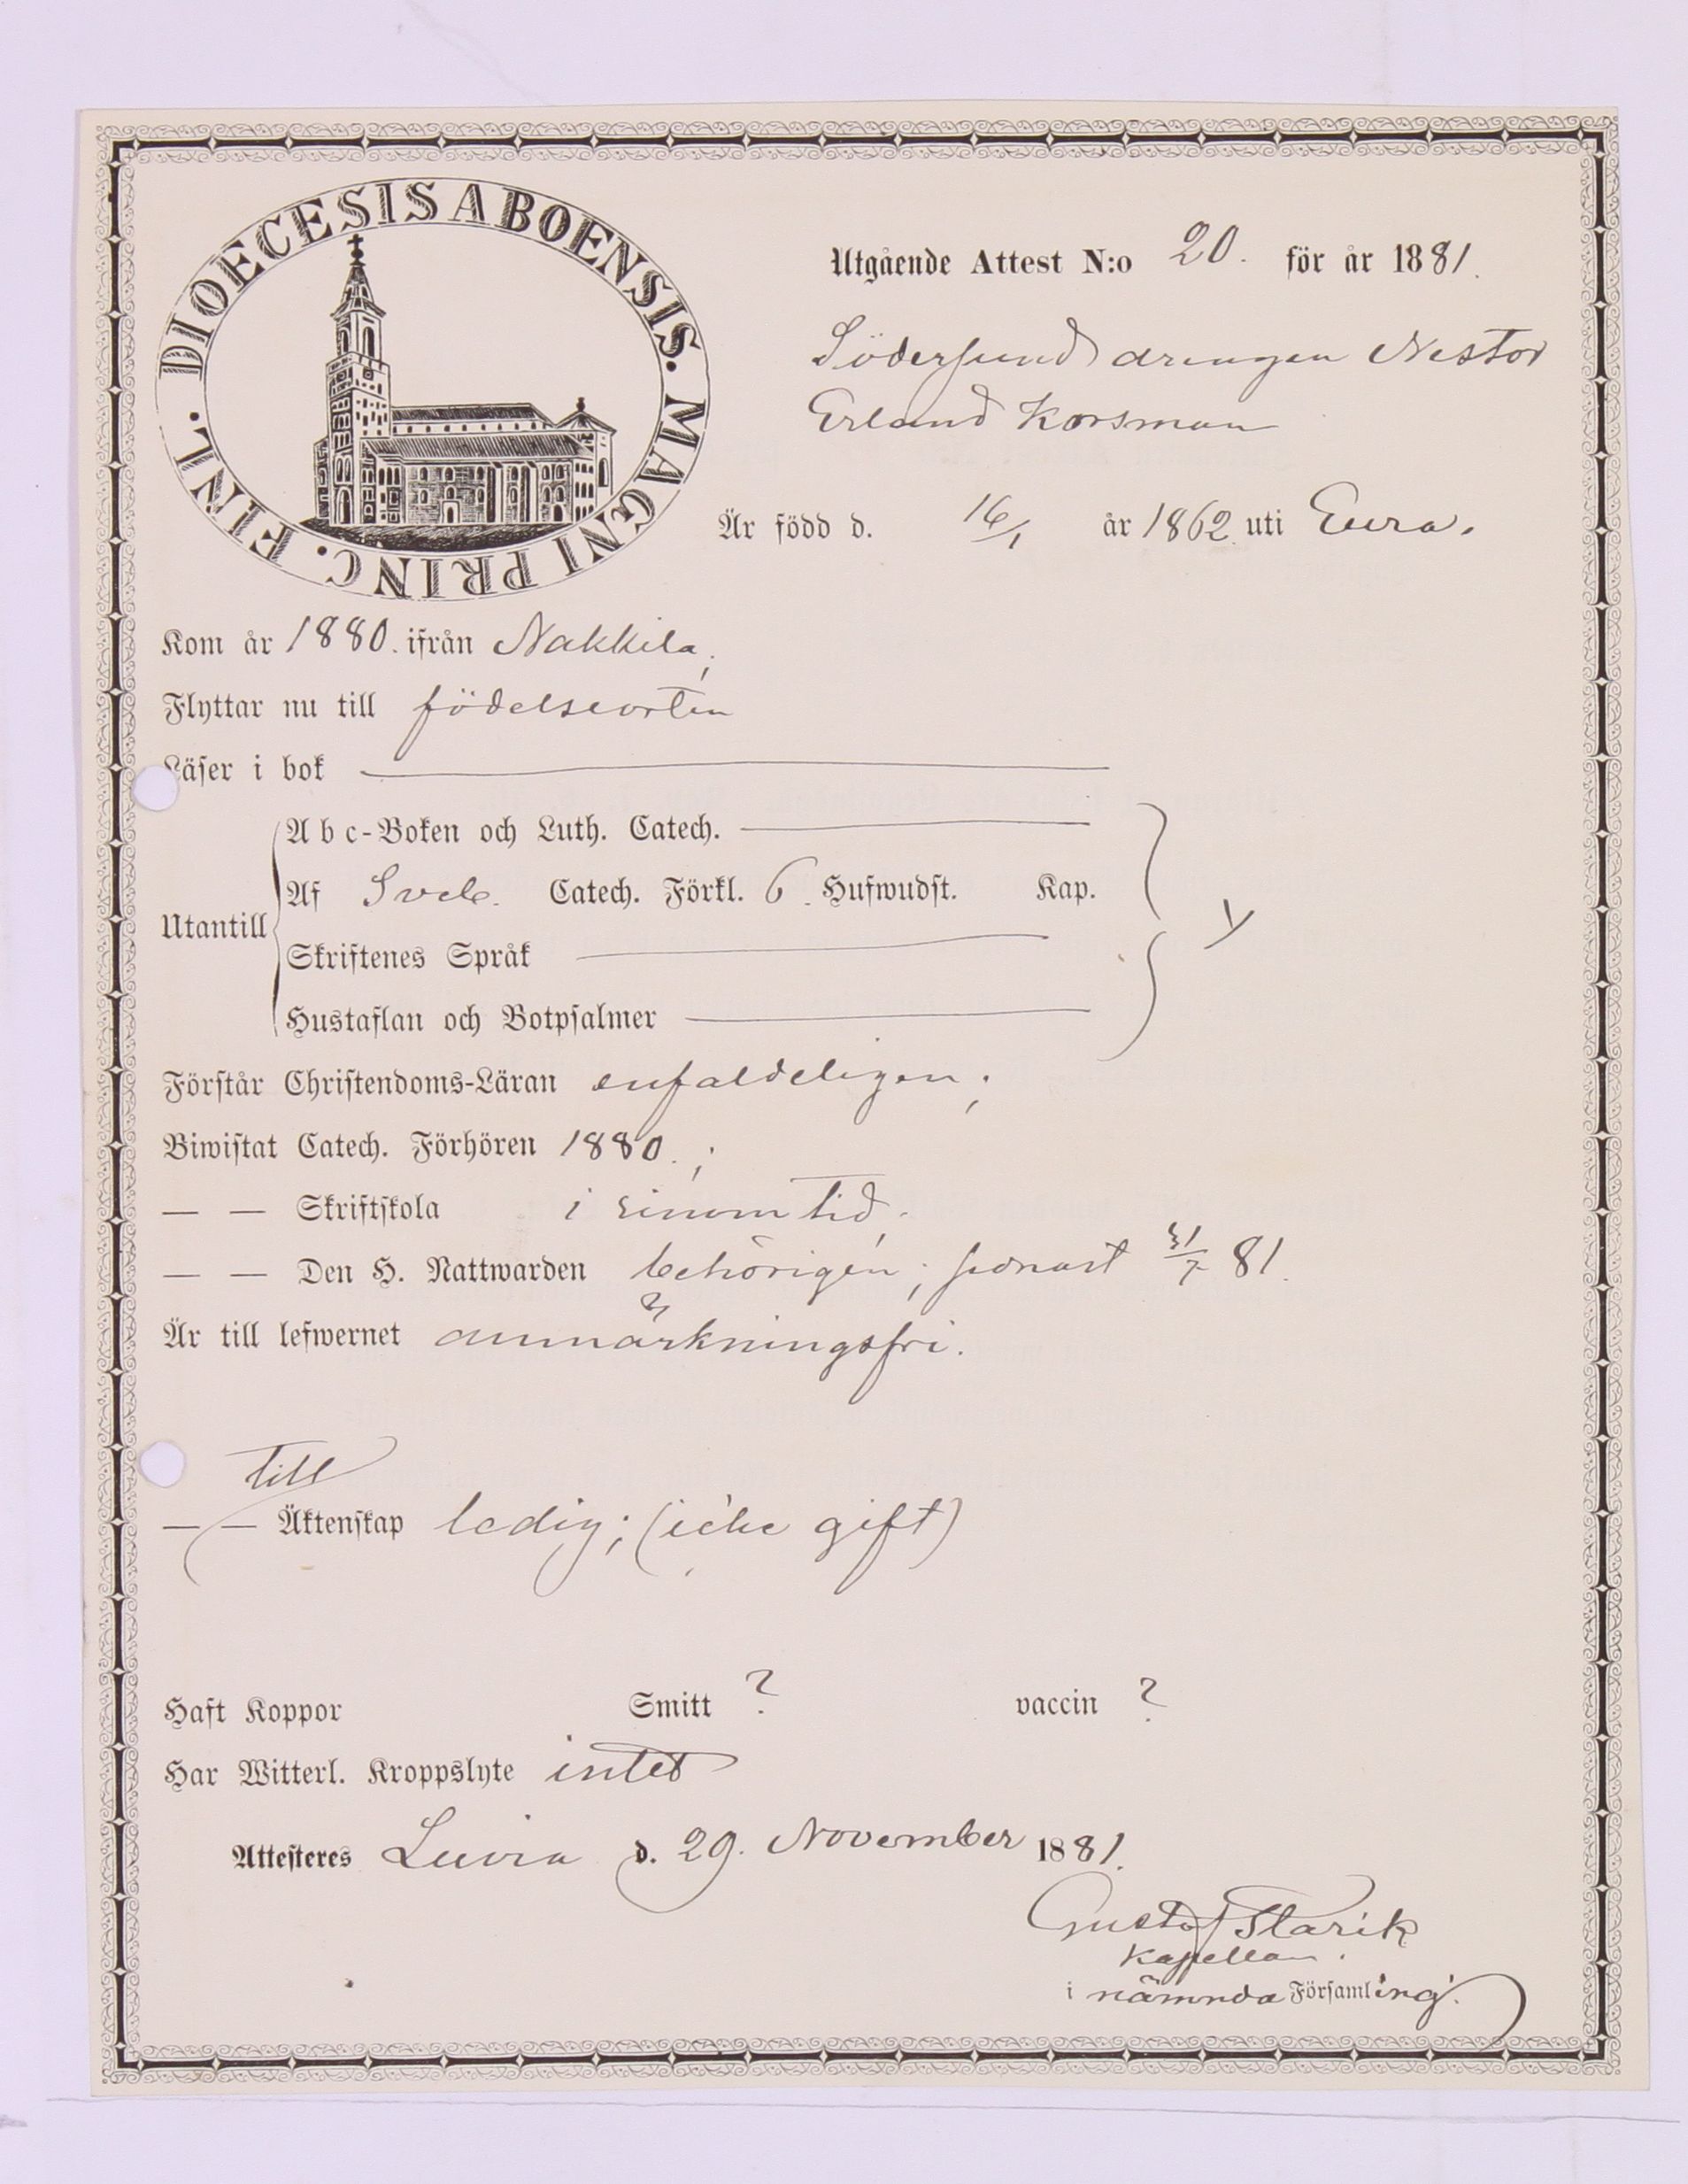 DIOECESIS ABOENSIS. MAGNI PRINC. FINL.
Utgående Attest N:o 20. för år 1881.
Södersund drengen Nestor
Erland Korsman
Är född d. 16/1 år 1862 uti Eura.
Kom år 1880. ifrån Nakkila;
Flyttar nu till födelseorten
Läser i bok
Abc-Boken och Luth. Catech.
Af Sveb. Catech. Förkl. 6. Hufwudst. Kap.
Utantill
Skriftenes Språk
Hustaflan och Botpsalmer
Förstår Christendoms-Läran enfaldeligen;
Biwistat Catech. Förhören 1880.;
— — Skriftskola i sinom tid.
— — Den H. Nattwarden behörigen; senast 31/7 81.
Är till lefwernet anmärkningsfri.
till
— — Äktenskap ledig; (icke gift)
Haft Koppor Smitt ? vaccin ?
Har Witterl. Kroppslyte intet
Attesteres Luvia d. 29. November 1881.
Gustaf Starik
Kapellan.
i nämnda Församling.